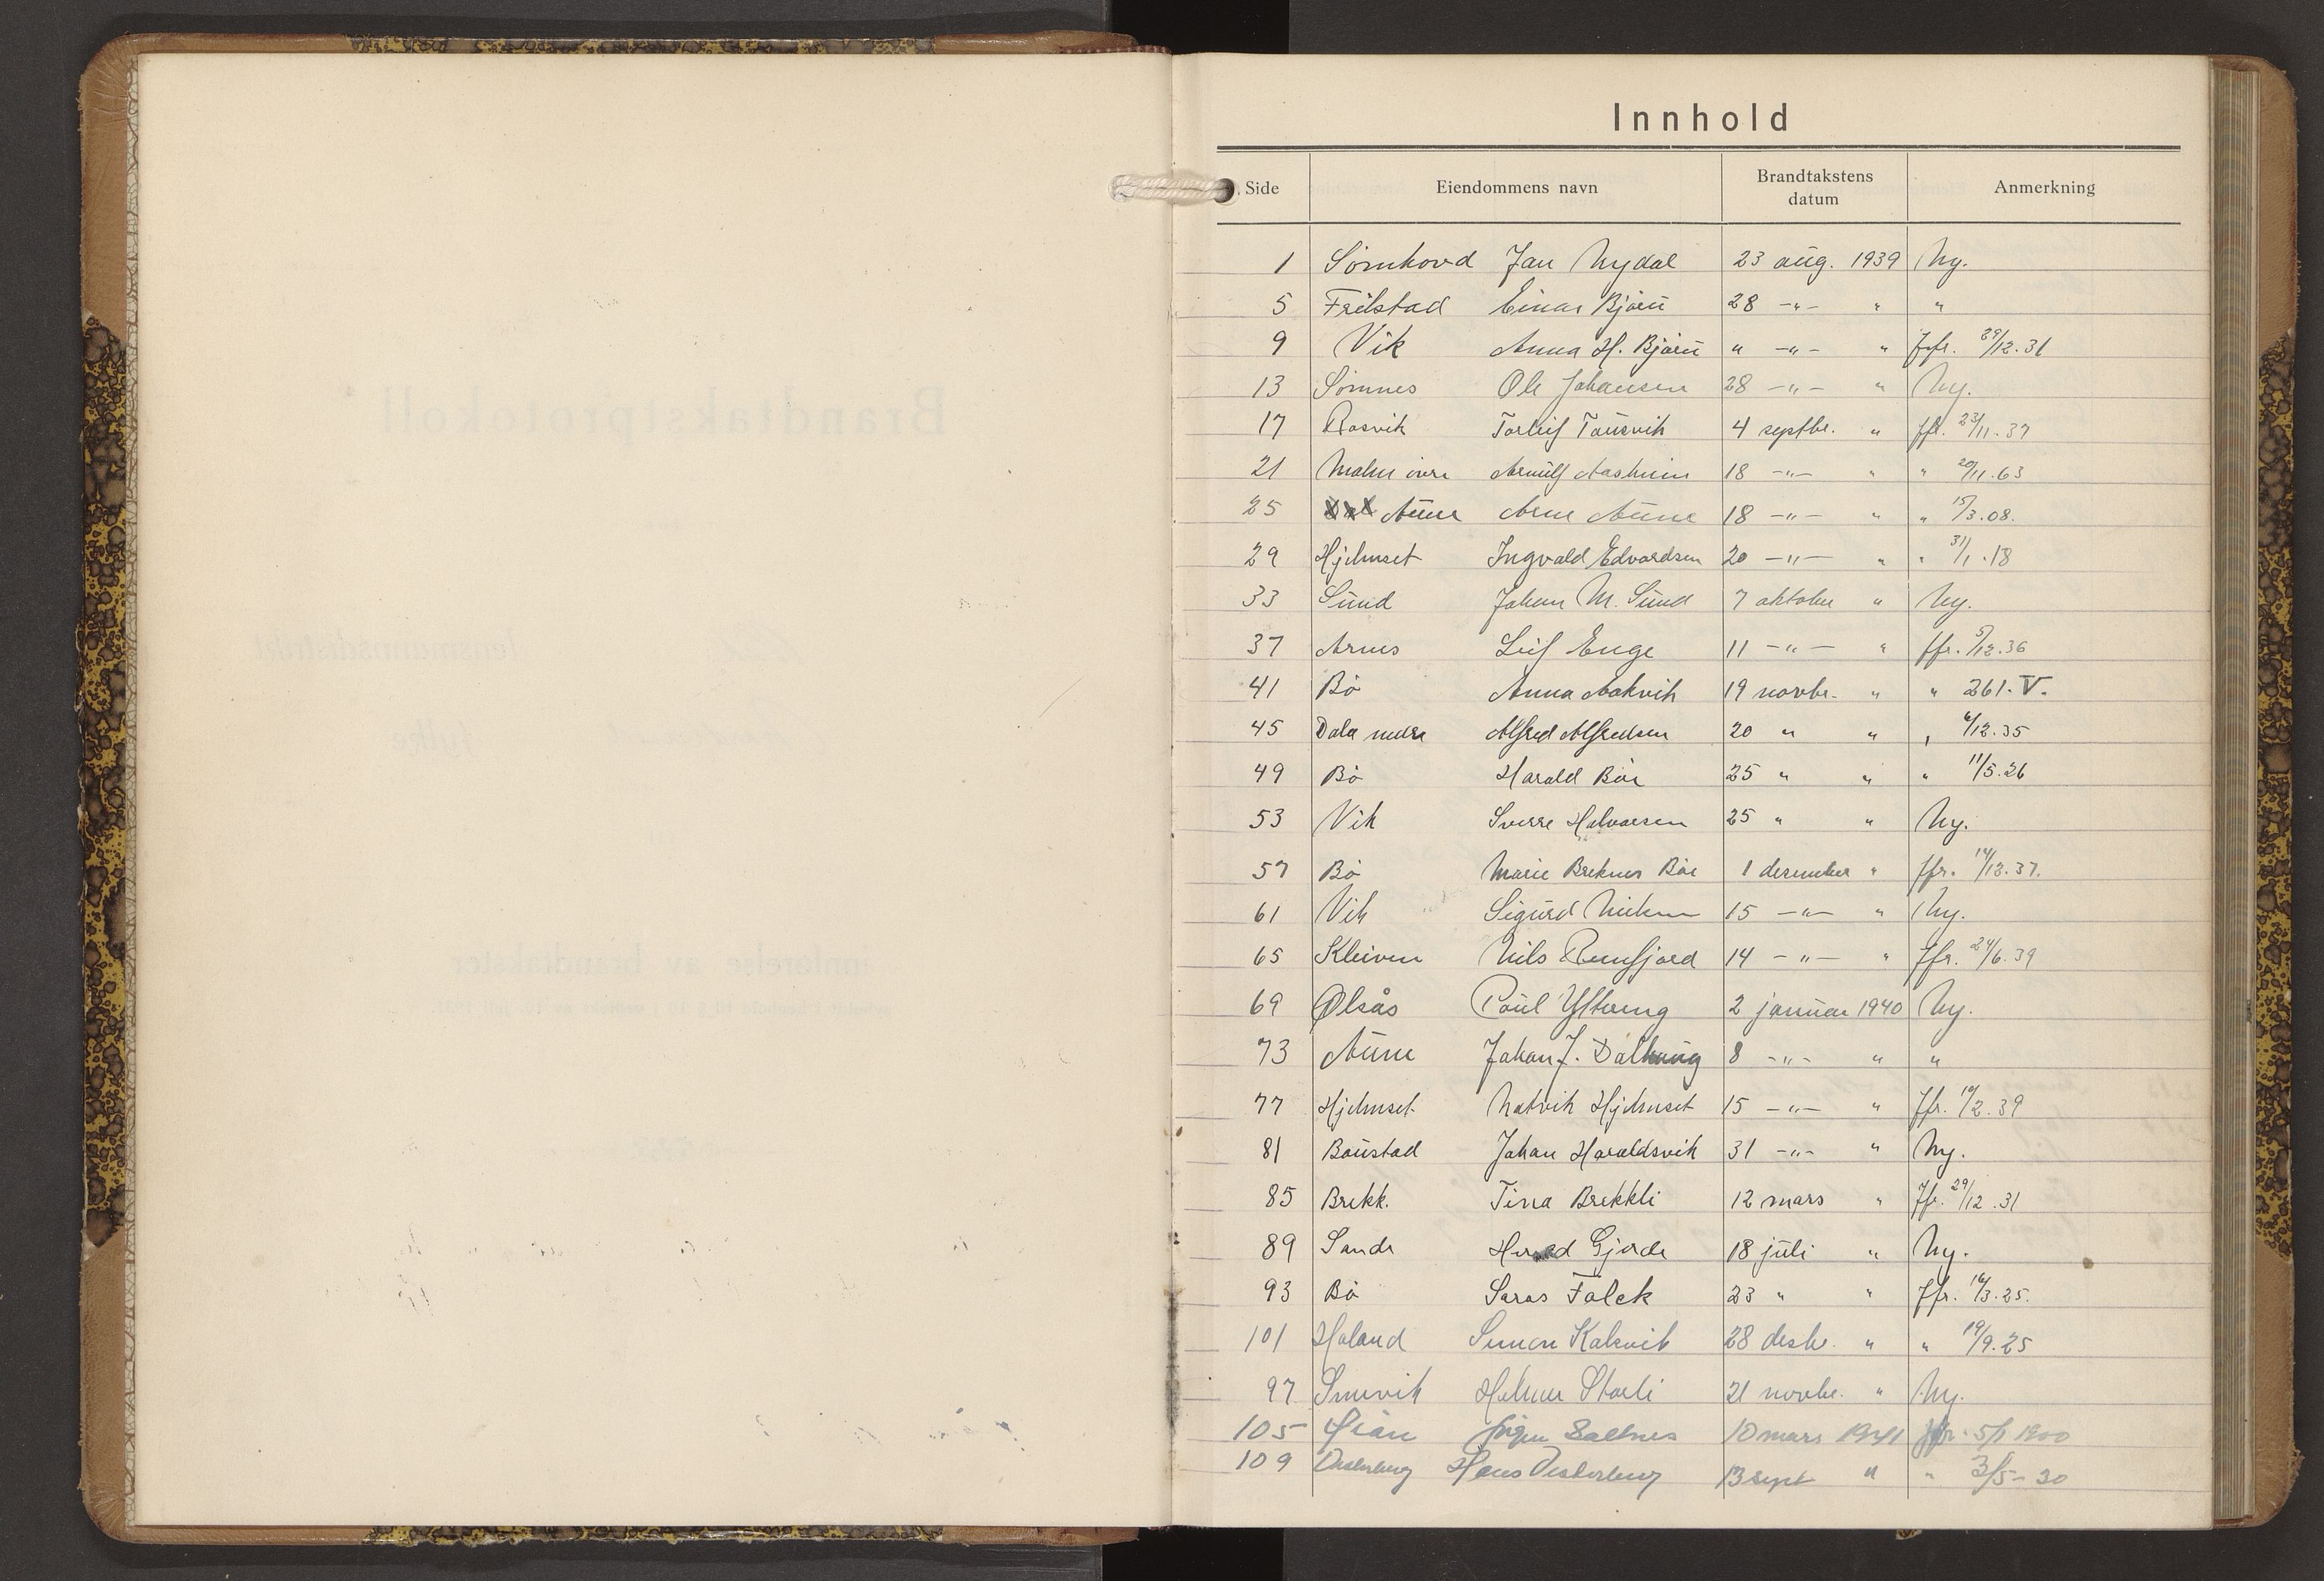 Innhold
Side Eiendommens navn Brandtakstens datum Anmerkning
1 Sömhovd Jan Nydal 23 aug. 1939 Ny.
5 Frilstad Einar Björu 28 -"- " "
9 Vik Anna H. Björu " -"- " Jfr. 29/12.31
13 Sömnes Ole Johansen 28 -"- " Ny.
17 Rosvik Torleif 4 septbr. " Jfr. 23/11.37
21 Malm övre Arnulf Aasheim 18 -"- " " 20/11.63
25 Aune Arne Aune 18 -"- " " 15/3.08.
29 Hjelmset Ingvald Edvardsen 20 -"- " " 31/1.18
33 Sund Johan M. Sund 7 oktober " Ny.
37 Arnes Leif Enge 11 -"- " Jfr. 5/12.36
41 Bö Anna Aakvik 19 novbr. " " 261. V.
45 Dala nedre Alfred Alfredsen 20 " " " 6/12.35
49 Bö Harald Böe 25 " " " 11/5.26
53 Vik Sverre Halvorsen 25 " " Ny.
57 Bö Marie Breknes Böe 1 desember " Jfr. 14/12.37.
61 Vik Sigurd 15 -"- " Ny.
65 Kleiven Nils Ramfjord 14 -"- " Jfr. 24/6.39
69 Ølsås Paul 2 januar 1940 Ny.
73 Aune Johan J. Dalhaug 8 -"- " "
77 Hjelmset Hjelmset 15 -"- " Jfr. 10/2.39
81 Baustad Johan Haraldsvik 31 -"- " Ny.
85 Brekk. Tina Brekkli 12 mars " Jfr. 29/12.31
89 Sande Gjerde 18 juli " Ny.
93 Bö Saras Falck 23 " " Jfr. 16/3.25.
101 Holand Simon Kalsvik 28 desbr. " " 19/9.25
97 Storli 21 novbr. " Ny.
105 Saltnes 10 mars 1941 Jfr. 5/1 1900
109 Vesterberg Hans Vesterberg 13 sept " " 3/5-30